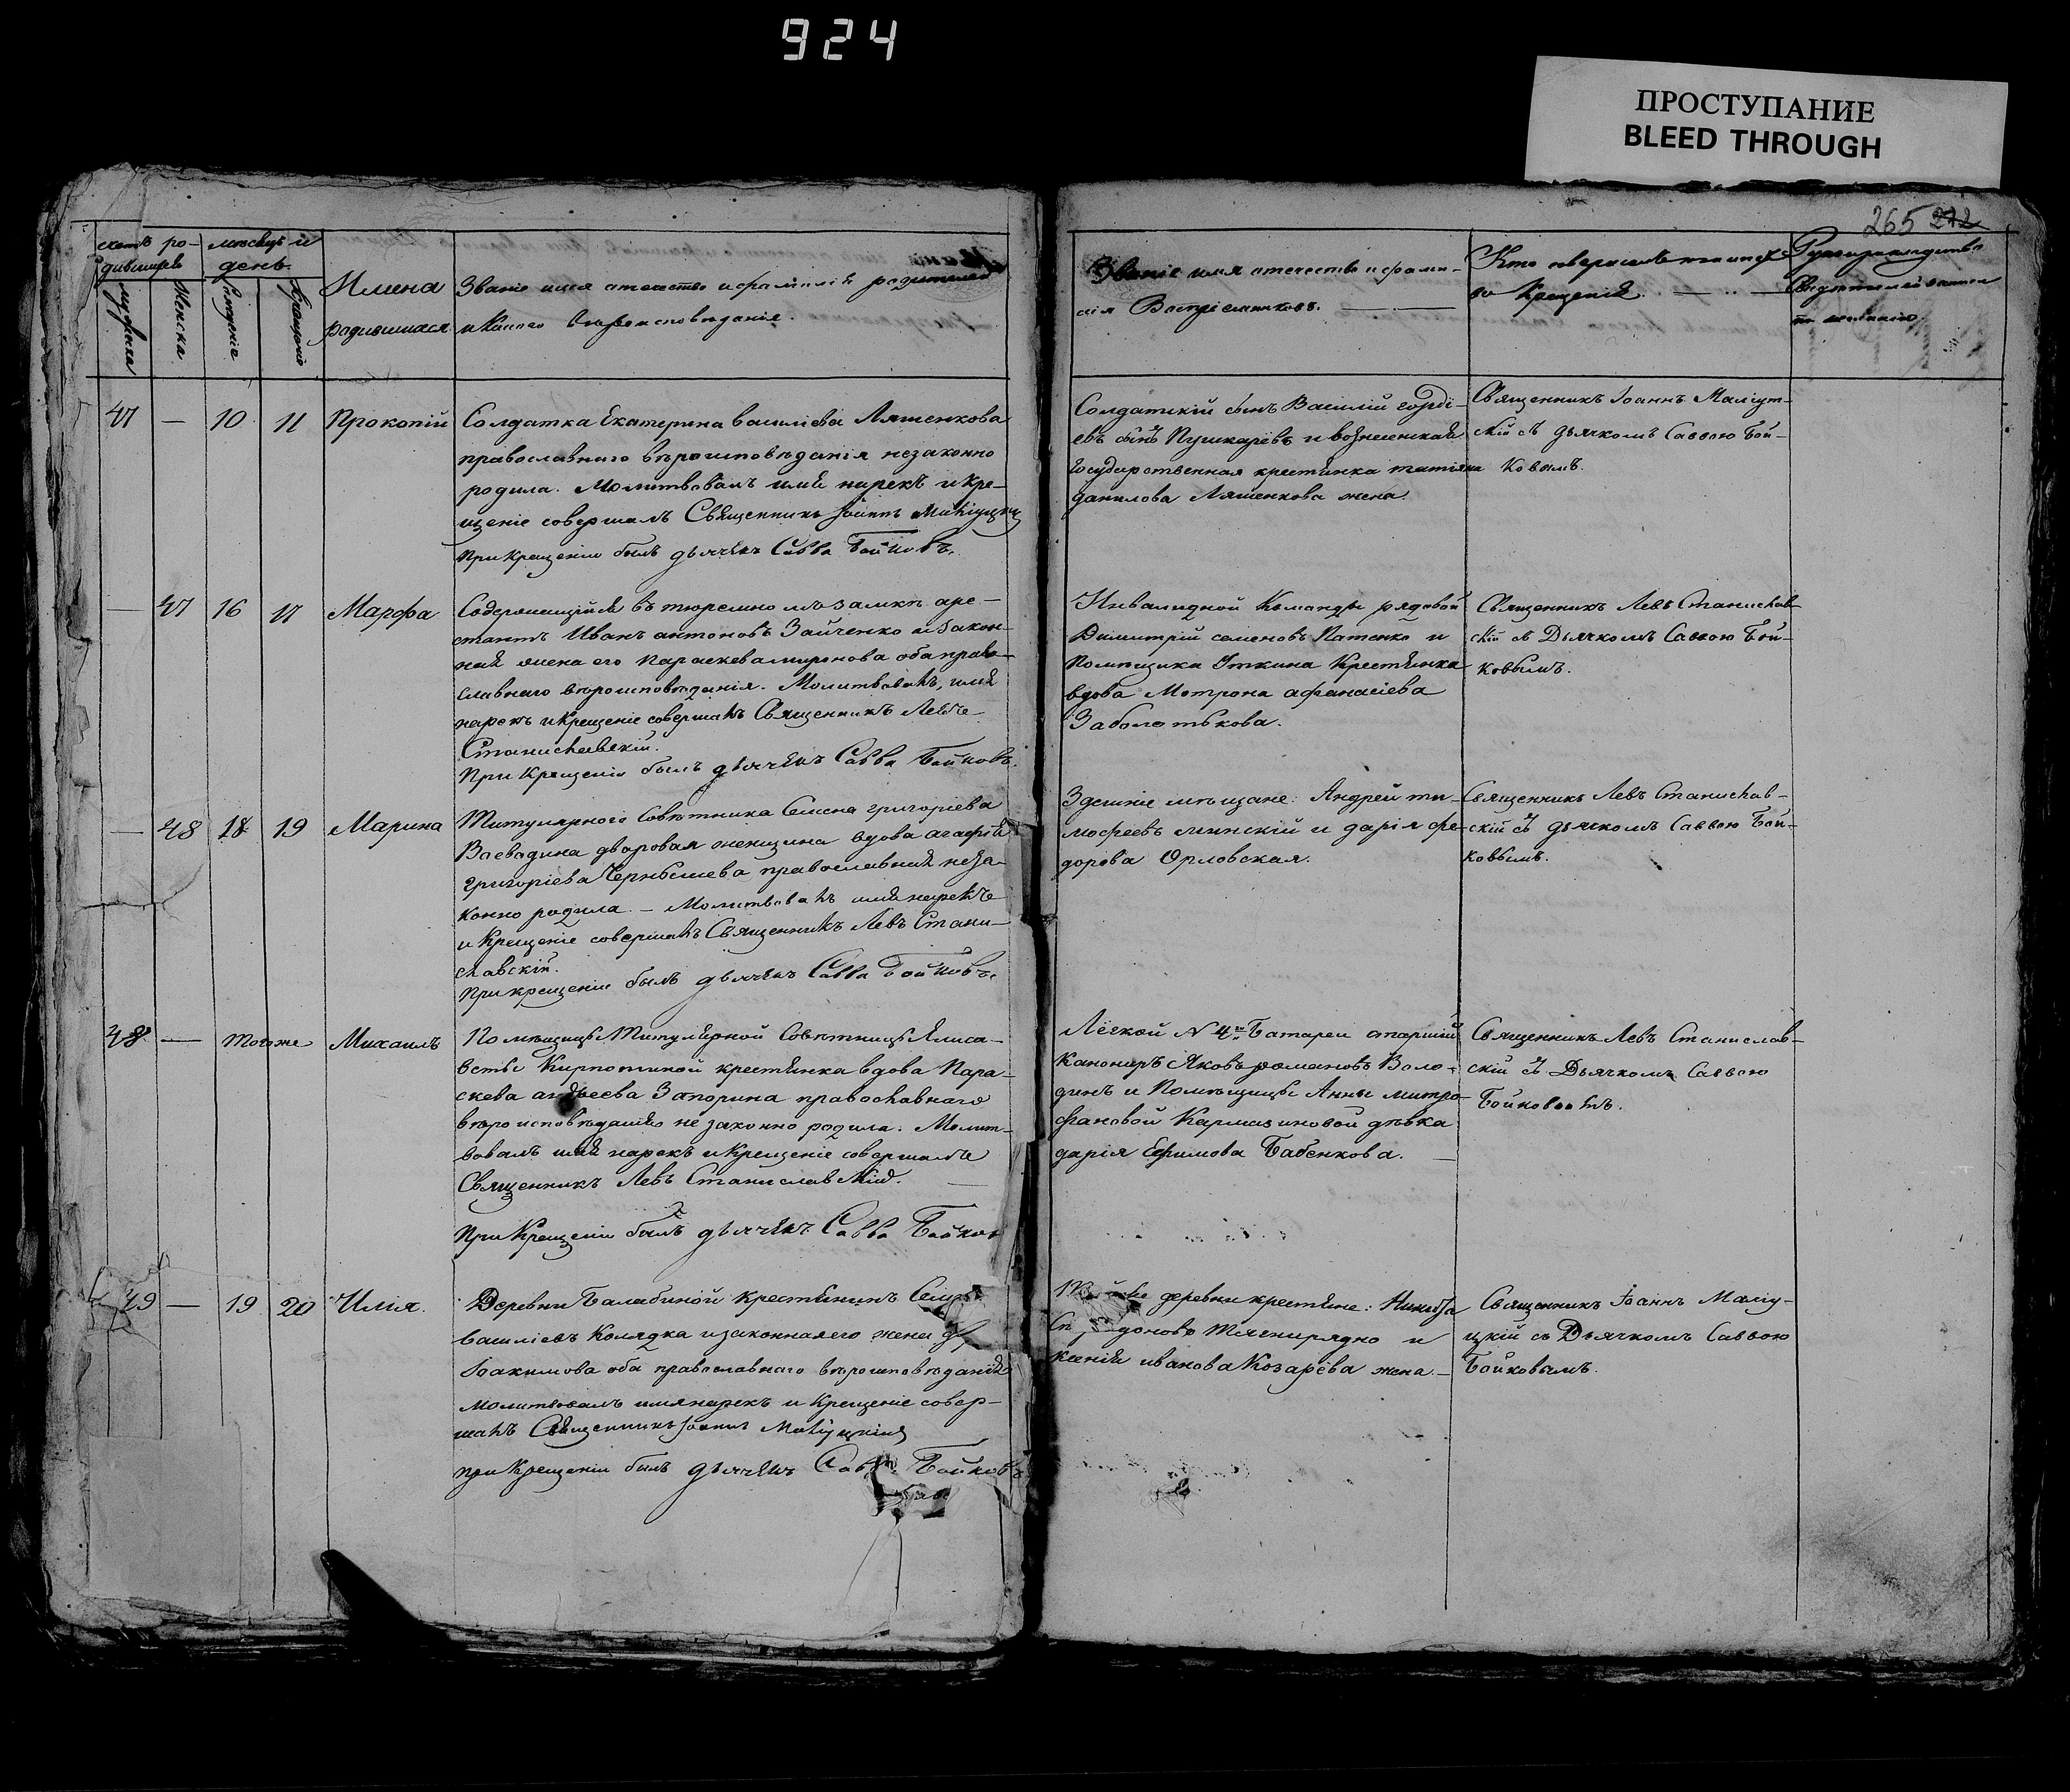 924
ПРОСТУПАНИЕ
BLEED THROUGH
265 272
счетъ ро-
дившихся
мѣсяцъ и
день.
мужеска
Женска
Рожденія
Крещенія
Имена
родившихся
Званіе имя отечество и фамилія родителей
и какого вѣроисповѣданія.
Званіе имя отечество и фами-
лія Воспріемниковъ.
Кто совершалъ таинст-
во Крещенія.
Рукоприкладство
свидѣтелей записи
по желанію.
47 — 10 11 Прокопій
Солдатка Екатерина василіева Ляшенкова
православнаго вѣроисповѣданія незаконно
родила. Молитвовалъ имя нарекъ и кре-
щеніе совершалъ Священникъ Іоаннъ
При Крещеніи былъ дьячекъ Савва Бойковъ.
Солдатскій сынъ Василій горді-
евъ сынъ Пушкаревъ и вознесенская
государственная крестьянка татіяна
данилова Ляшенкова жена.
Священникъ Іоаннъ
съ дьячкомъ Саввою Бой-
ковымъ.
— 47 16 17 Марфа
Содержащійся въ тюремномъ замкѣ аре-
стантъ Иванъ антоновъ Зайченко и закон-
ная жена его параскева миронова оба право-
славнаго вѣроисповѣданія. Молитвовалъ, имя
нарекъ и крещеніе совершалъ Священникъ Левъ
Станиславскій.
При Крещеніи былъ дьячекъ Савва Бойковъ.
Инвалидной Команды рядовой
Димитрій семеновъ Патенко и
Помѣщика Уткина Крестьянка
вдова Мотрона афанасіева
Заболотькова.
Священникъ Левъ Станислав-
скій съ Дьячкомъ Саввою Бой-
ковымъ.
— 48 18 19 Марина
Титулярнаго Совѣтника Семена григоріева
Воеводина дворовая женщина вдова агафія
григоріева Чернышева православная неза-
конно родила. — Молитвовалъ имя нарекъ
и Крещеніе совершалъ Священникъ Левъ Стани-
славскій.
При крещеніи былъ дьячекъ Савва Бойковъ.
Здешніе мѣщане: Андрей ти-
мофеевъ минскій и дарія фе-
дорова Орловская.
Священникъ Левъ Станислав-
скій съ дьячкомъ Саввою Бой-
ковымъ.
48 — тогоже Михаилъ
Помѣщицы Титулярной Совѣтницы Елиса-
веты Кирпотиной крестьянка вдова Пара-
скева Запорина православнаго
вѣроисповѣданія не законно родила. Молит-
вовалъ имя нарекъ и Крещеніе совершалъ
Священникъ Левъ Станиславскій.
При Крещеніи былъ дьячекъ Савва Бойковъ
Лёгкой N 4й Батареи старшій
Канониръ Яковъ романовъ Воло-
динъ и Помѣщицы Анны митро-
фановой Кармазиновой дѣвка
дарія Ефимова Бабенкова. —
Священникъ Левъ Станислав-
скій съ Дьячкомъ Саввою
Бойковымъ.
49 — 19 20 Илія.
Деревни Балабиной крестьянинъ
василіевъ Колядка и законная его жена
Іоакимова оба православнаго вѣроисповѣданія
молитвовалъ имя нарекъ и Крещеніе совер-
шалъ Священникъ Іоаннъ
при Крещеніи былъ дьячекъ Савва Бойковъ
деревни крестьяне: Никита
и
ксенія иванова Козарёва жена. —
Священникъ Іоаннъ
съ Дьячкомъ Саввою
Бойковымъ.